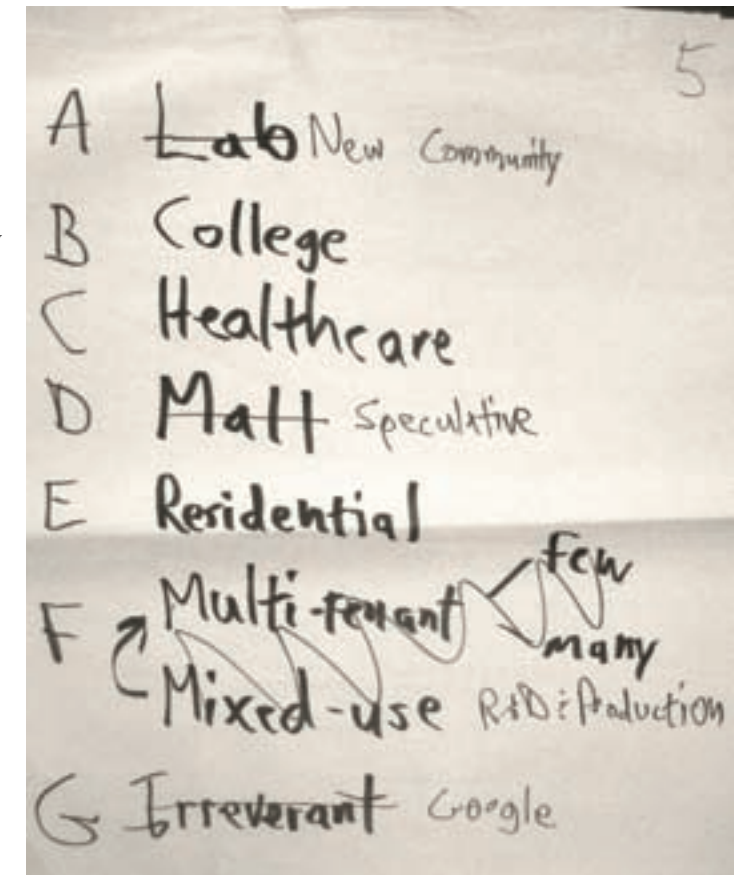 5
A Lab New Community
B College
C Healthcare
D Mall Speculative
E Residential
few
F Multi-tenant
many
Mixed-use R&D & Production
G Irreverant Google